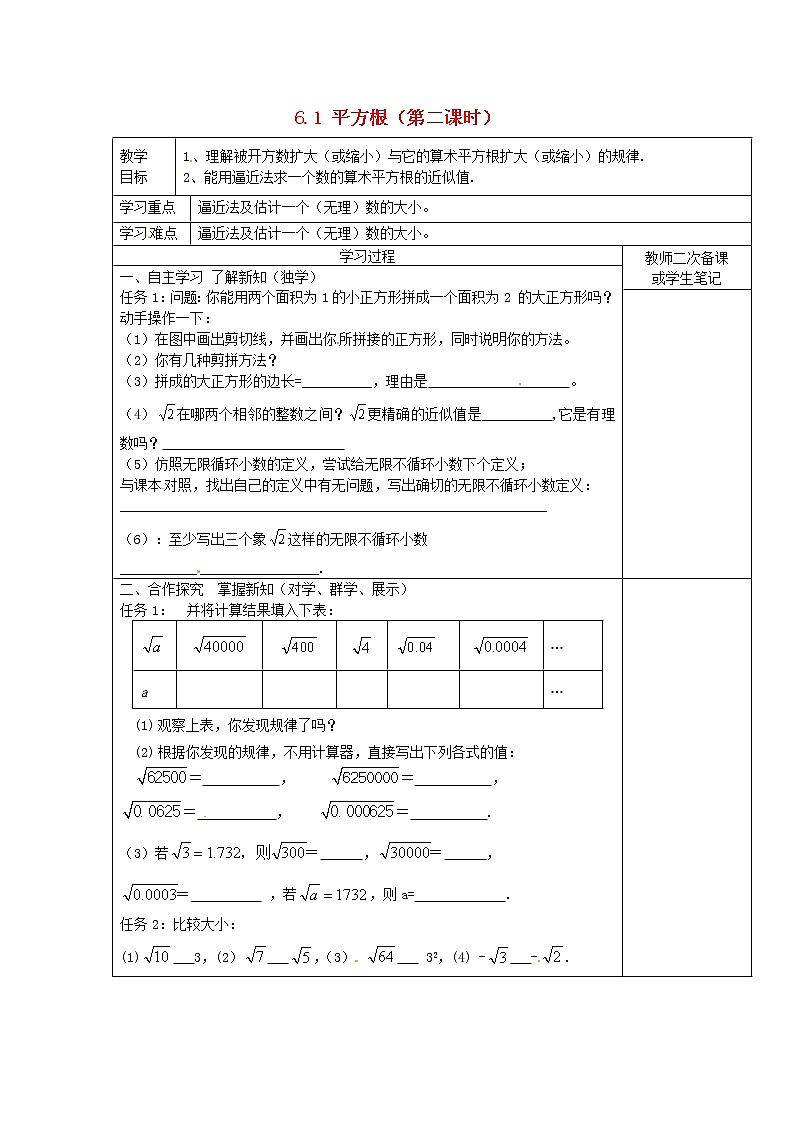 6.1 平方根（第二课时）
教学
目标
1、理解被开方数扩大（或缩小）与它的算术平方根扩大（或缩小）的规律.
2、能用逼近法求一个数的算术平方根的近似值.
学习重点
逼近法及估计一个（无理）数的大小。
学习难点
逼近法及估计一个（无理）数的大小。
学习过程
教师二次备课
或学生笔记
一、自主学习 了解新知（独学）
任务1:问题:你能用两个面积为1的小正方形拼成一个面积为2 的大正方形吗?
动手操作一下:
（1）在图中画出剪切线，并画出你所拼接的正方形，同时说明你的方法。
（2）你有几种剪拼方法？
（3）拼成的大正方形的边长=__________，理由是____________________。
（4）√2在哪两个相邻的整数之间？√2更精确的近似值是__________,它是有理
数吗？__________________________
（5）仿照无限循环小数的定义，尝试给无限不循环小数下个定义；
与课本对照，找出自己的定义中有无问题，写出确切的无限不循环小数定义：
_____________________________________________________________
（6）：至少写出三个象√2这样的无限不循环小数
____________________________.
二、合作探究 掌握新知（对学、群学、展示）
任务1: 并将计算结果填入下表:
√a √40000 √400 √4 √0.04 √0.0004 …
a …
(1)观察上表，你发现规律了吗？
(2)根据你发现的规律，不用计算器，直接写出下列各式的值:
√62500=___________， √6250000=___________，
√0.0625=___________， √0.000625=___________.
（3）若√3=1.732，则√300=______，√30000=______，
√0.0003=__________ ，若√a=1732，则a=_____________.
任务2:比较大小:
(1)√10 ___3，(2) √7 ___ √5，(3) √64 ___ 3²，(4) -√3 ___-√2.